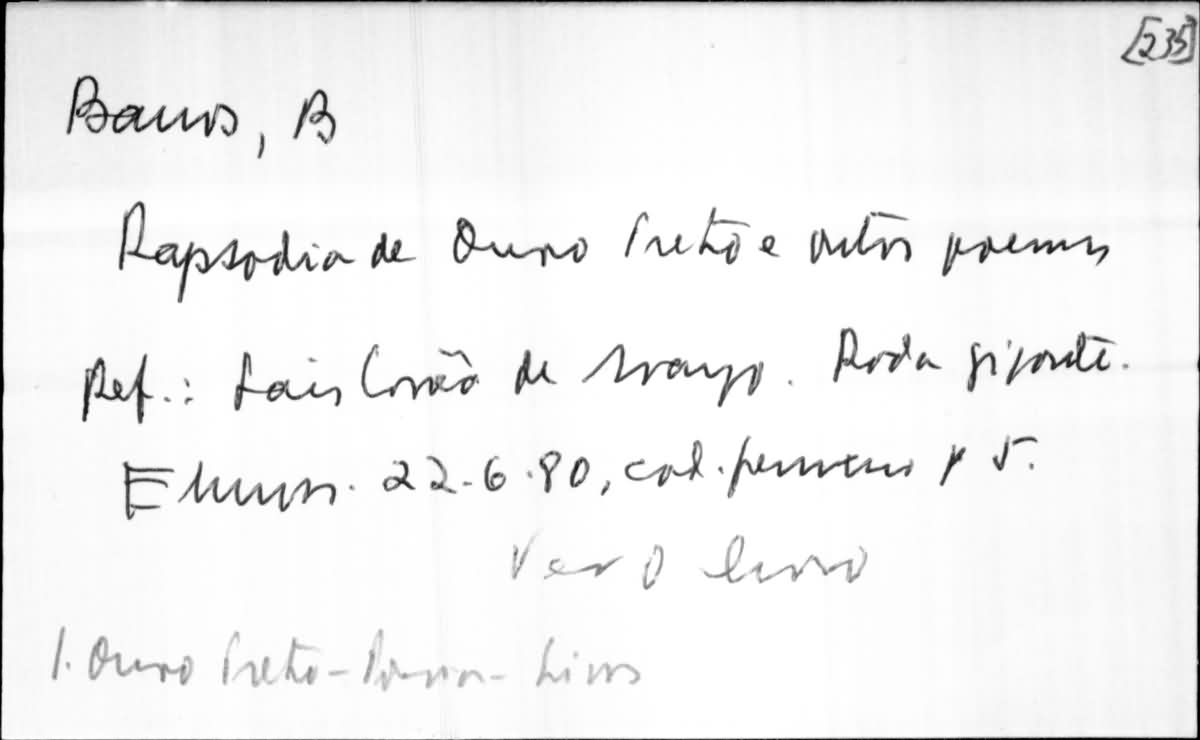 [235]
Barros, B
Rapsodia de Ouro Preto e outros poemas
Ref.: Lais Corrêa de Araujo. Roda gigante.
E Minas. 22-6-80, cad. p 5.
Ver o livro
1. Ouro Preto - Poesia - Livros